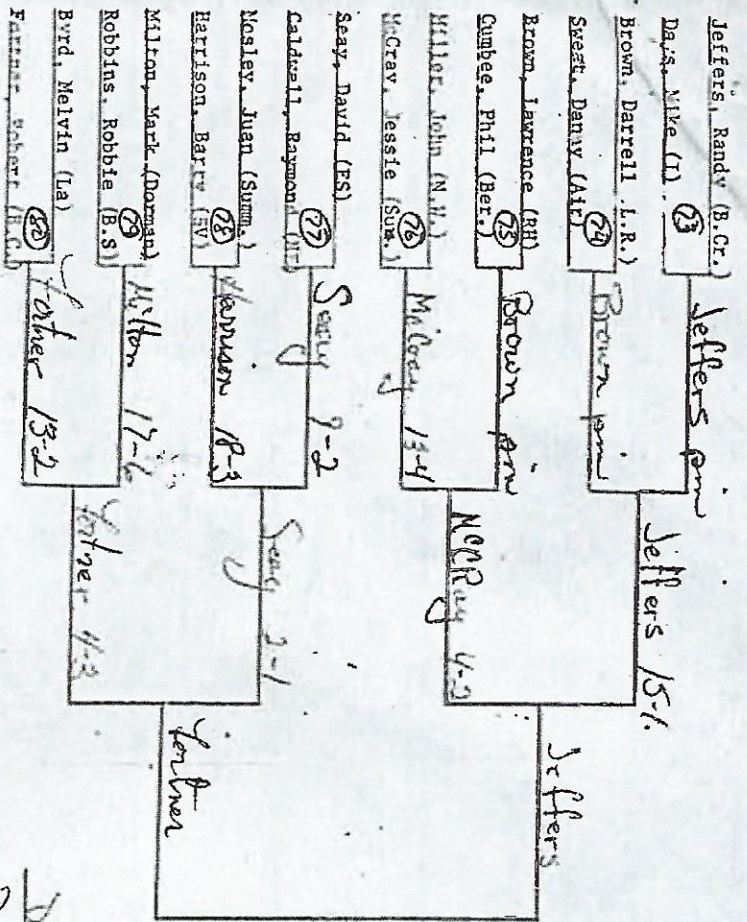 Jeffers, Randy (B.Cr.)
Davis, Mike (I)
73
Brown, Darrell L.R.)
Sweat, Danny (Air)
74
Brown, Lawrence (RH)
Cumbee, Phil (Ber.)
75
Miller, John (N.H.)
McCray, Jessie (Sum.)
76
Seay, David (FS)
Caldwell, Raymond
77
Mosley, Juan (Summ.)
Harrison, Barry
78
Milton, Mark (Dorman)
Robbins, Robbie (B.S)
79
Byrd, Melvin (La)
80
Jeffers pin
Brown pin
Brown pin
McCray 13-4
Seay
Harrison 18-3
Milton 17-6
Fortner 13-2
Jeffers 15-1
McCRay
Seay
Fortner
Jeffers
Fortner